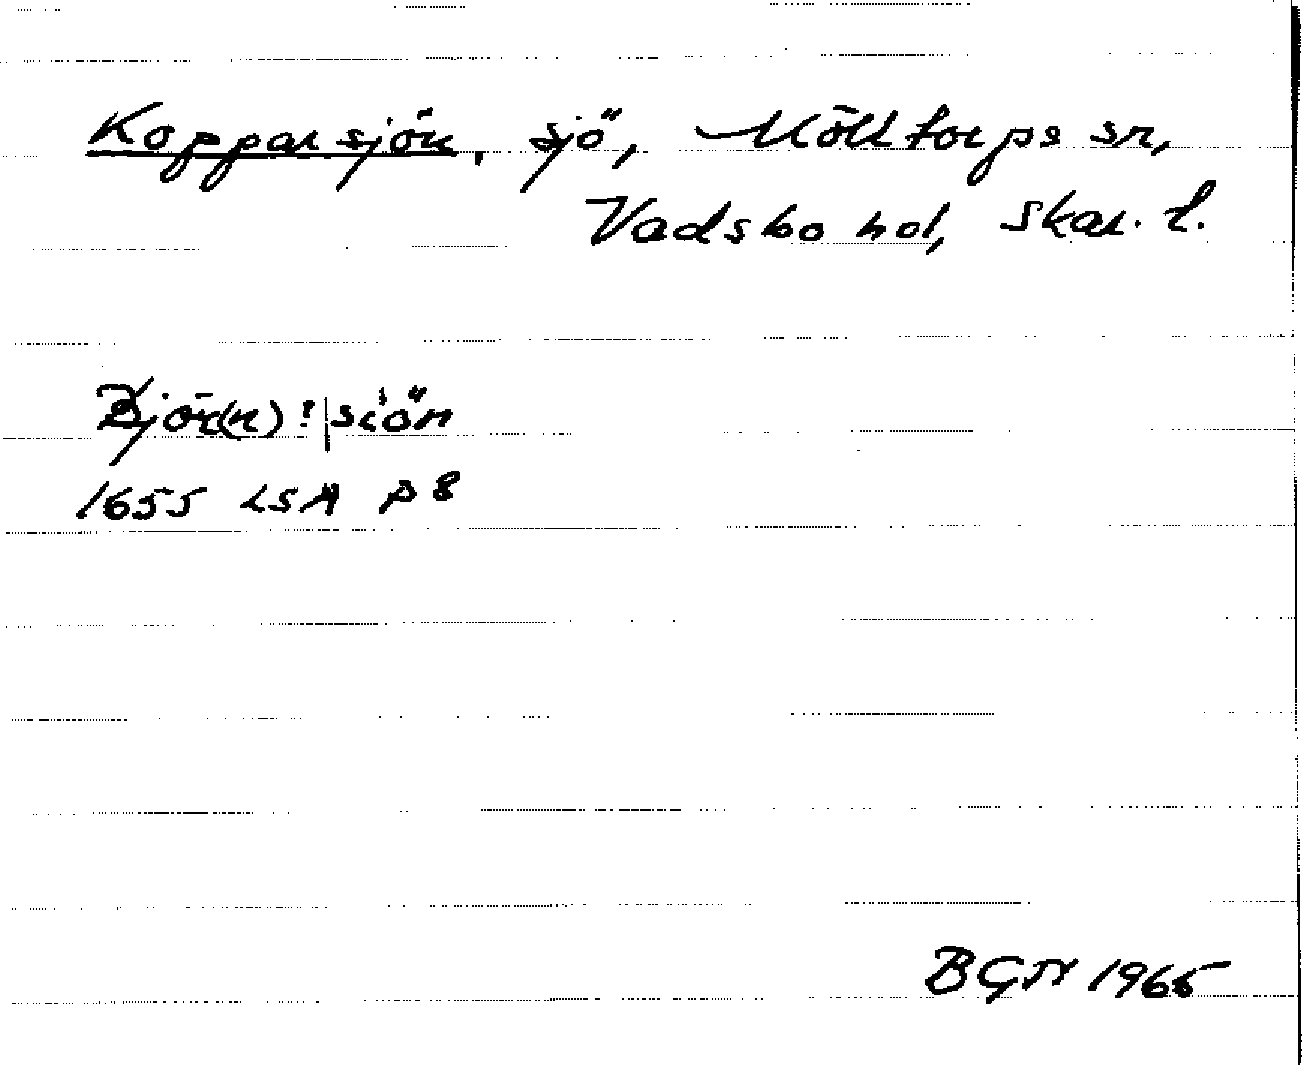 Kopparsjön, sjö, Mölltorps sn,
Vadsbo hd, Skar. l.
Björ(n)!|siön
1655 LSA p 8
BGN 1965